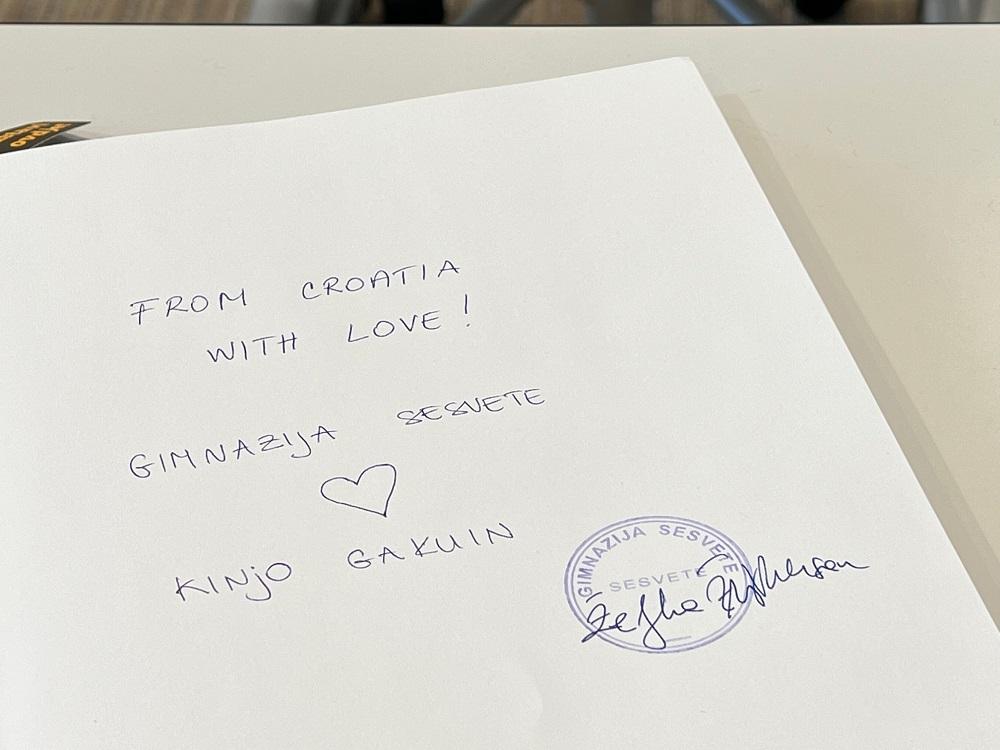 FROM CROATIA
WITH LOVE!
GIMNAZIJA SESVETE
KINJO GAKUIN
GIMNAZIJA SESVETE
SESVETE